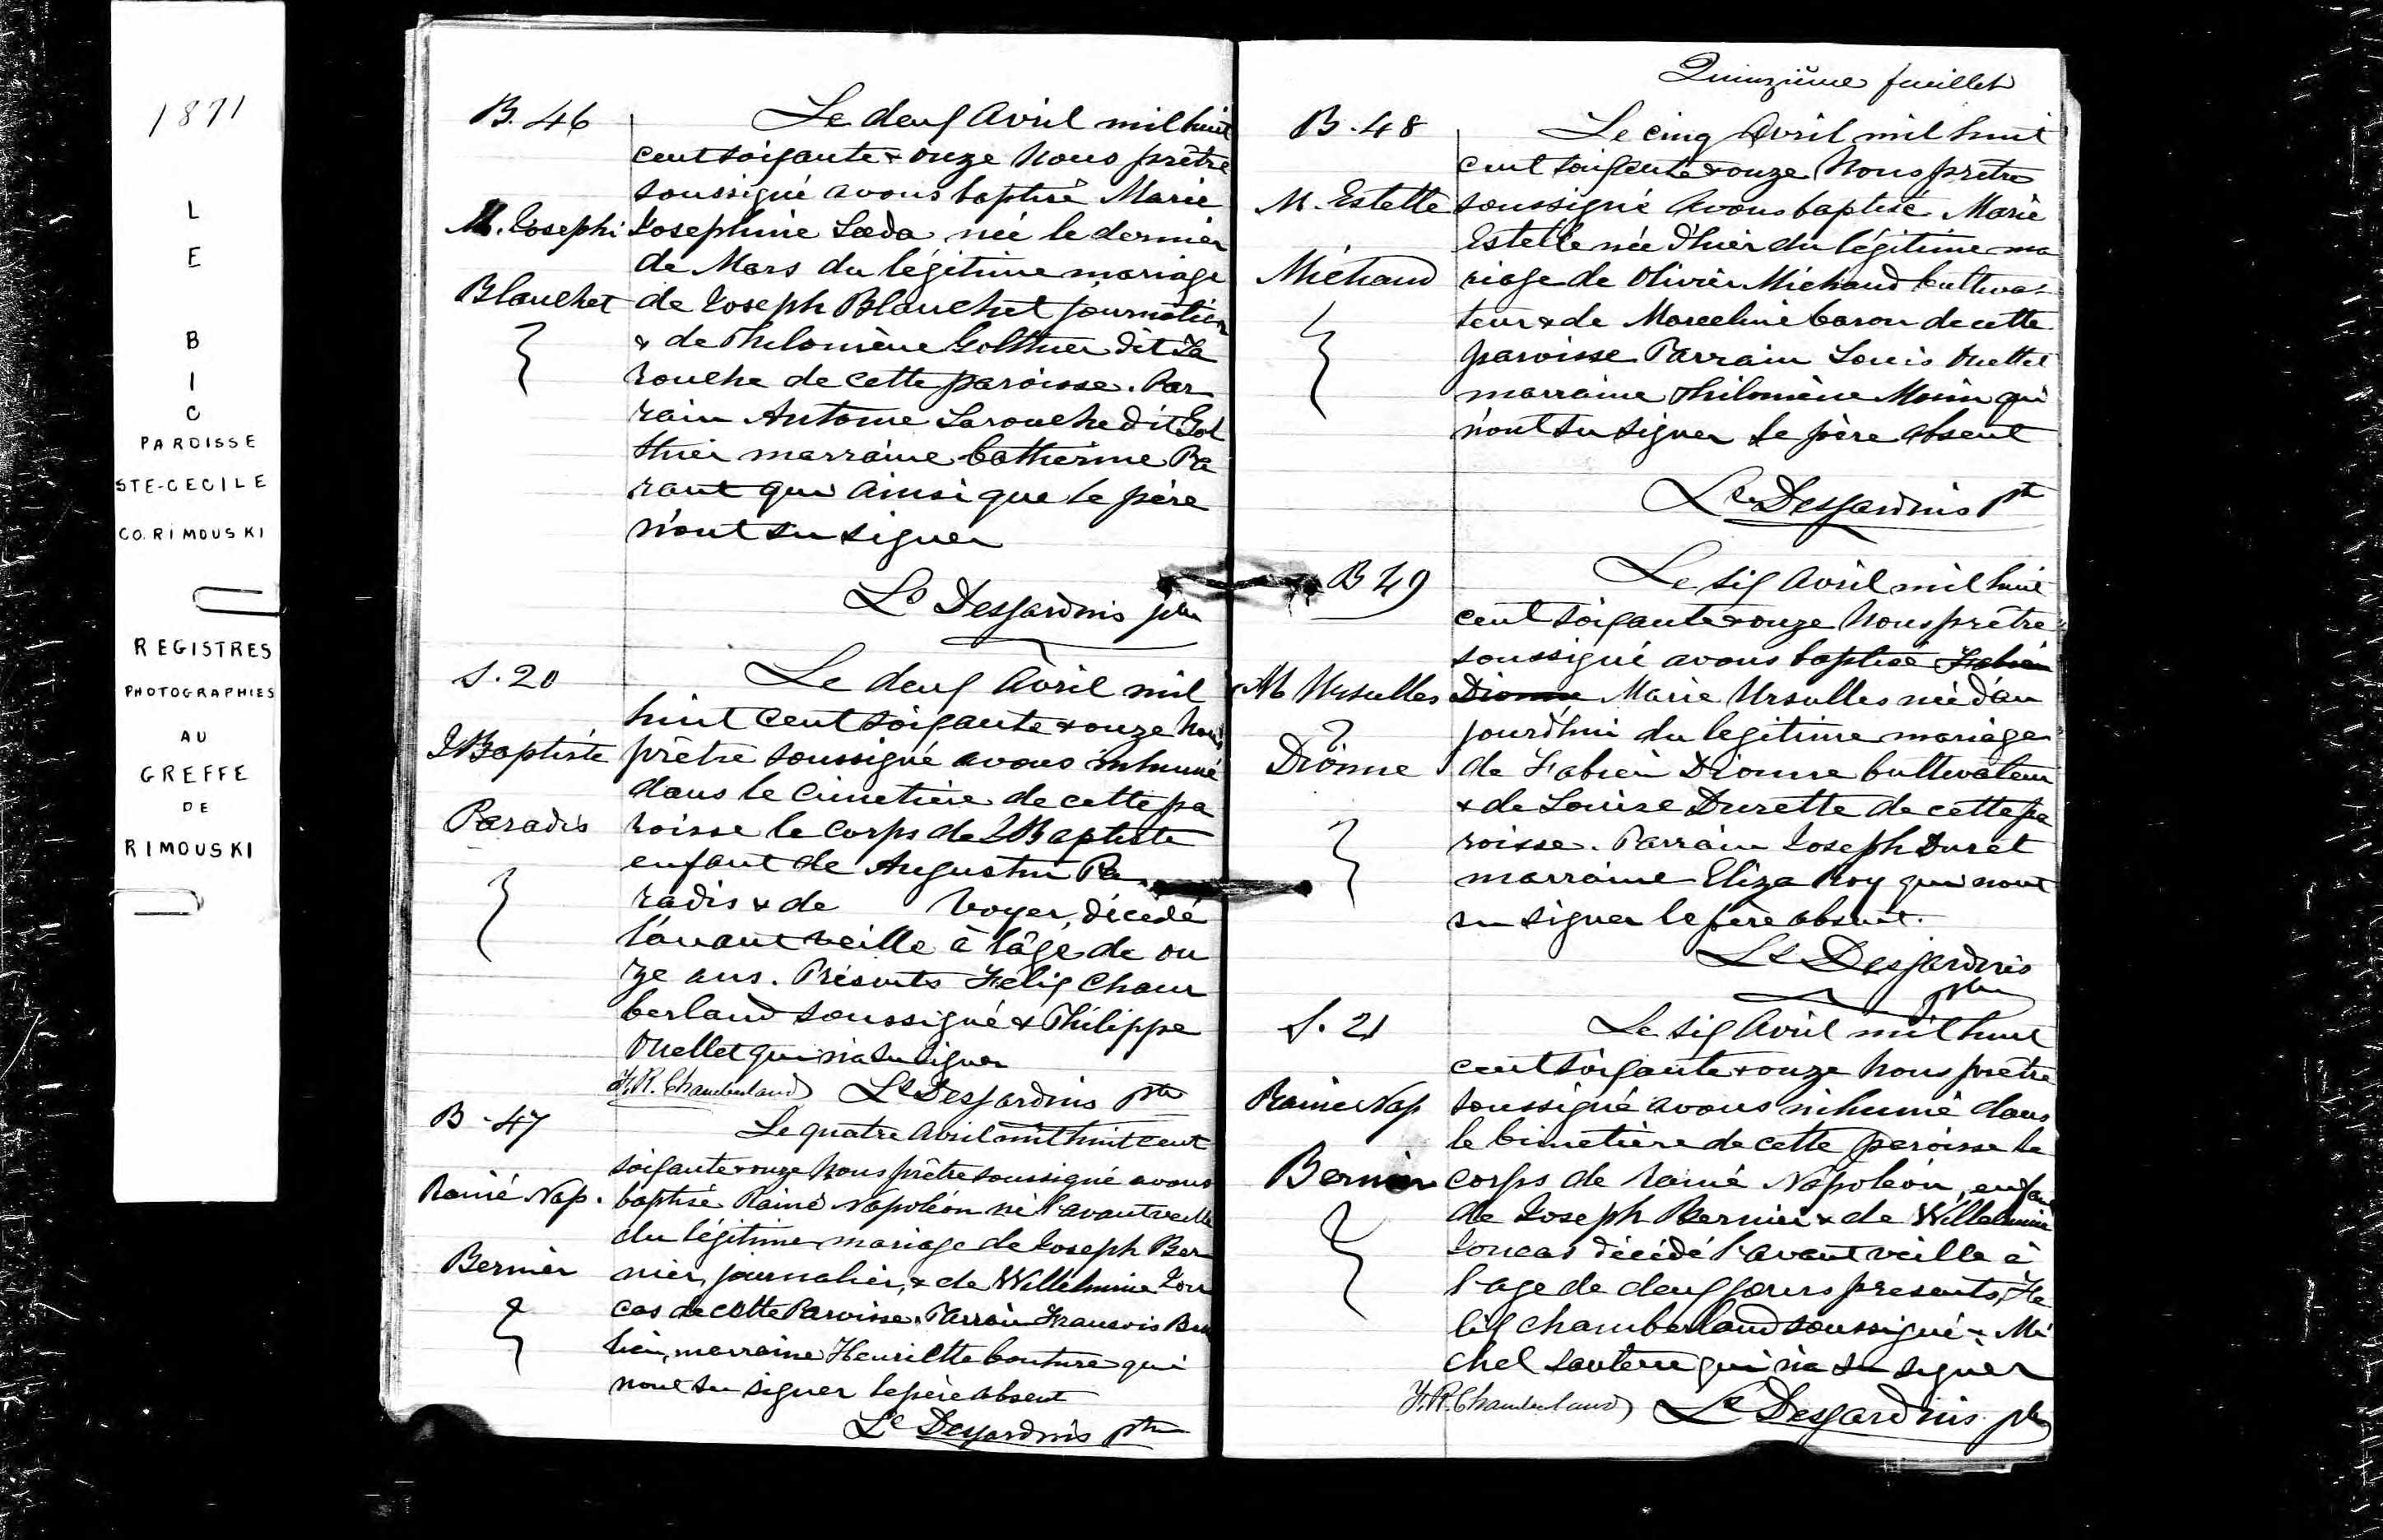 1871
L
E
B
I
C
PAROISSE
STE-CECILE
CO. RIMOUSKI
REGISTRES
PHOTOGRAPHIES
AU
GREFFE
DE
RIMOUSKI
B. 46
M. Josephi
Blanchet
Le deux Avril mil huit
cent soixante & onze Nous prêtre
soussigné avons baptisé Marie
Josephine Læda née le dernier
de Mars du légitime mariage
de Joseph Blanchet journalier
& de Philomène Golthier dit La
rouche de cette paroisse. Par
rain Antoine Larouche dit Gol
thier marraine Catherine Pa
rant qui ainsi que le père
n'ont su signer
Ls DesJardins ptre
S. 20
J Baptiste
Paradis
Le deux Avril mil
huit cent soixante & onze Nous
prêtre soussigné avons inhumé
dans le cimetière de cette pa
roisse le corps de J Baptiste
enfant de Augustin Pa
radis & de Voyer, décédé
l'avant veille à l'âge de on
ze ans. Présents Felix Cham
berland soussigné & Philippe
Ouellet qui n'a su signer
F. R. Chamberland Ls DesJardins ptre
B. 47
Rainé Nap.
Bernier
Le quatre Avril mil huit cent
soixante & onze Nous prêtre soussigné avons
baptisé Rainé Napoléon né l'avant veille
du légitime mariage de Joseph Ber
nier, journalier, & de Willelmine Jon
cas de cette Paroisse. Parrain Francois
marraine Henriette Couture qui
n'ont su signer le père absent
Ls DesJardins ptre
Quinzième feuillet
B. 48
M. Estelle
Michaud
Le cinq Avril mil huit
cent soixante & onze Nous prêtre
soussigné Avons baptisé Marie
Estelle née d'hier du légitime ma
riage de Olivier Michaud Cultiva-
teur & de Marceline Caron de cette
paroisse Parrain Louis Ouellet
marraine Philomène Morin qui
n'ont su signer le père absent
Ls DesJardins ptre
B 49
M Ursulles
Dionne
Le six Avril mil huit
cent soixante & onze Nous prêtre
soussigné avons baptisé Fabien
Dionne Marie Ursulles née d'au
jourd'hui du legitime mariage
de Fabien Dionne Cultivateur
& de Louise Durette de cette pa
roisse. Parrain Joseph Duret
marraine Eliza Roy qui n'ont
su signer le père absent.
Ls DesJardins
ptre
S. 21
Rainé Nap
Bernier
Le six Avril mil huit
cent soixante & onze Nous prêtre
soussigné avons inhumé dans
le Cimetière de cette paroisse le
corps de Rainé Napoléon, enfant
de Joseph Bernier & de Willelmine
Joncas décédé l'avant veille à
l'age de deux jours presents, Fe
lix Chamberland soussigné & Mi
chel qui n'a su signer
F. R. Chamberland Ls DesJardins ptre